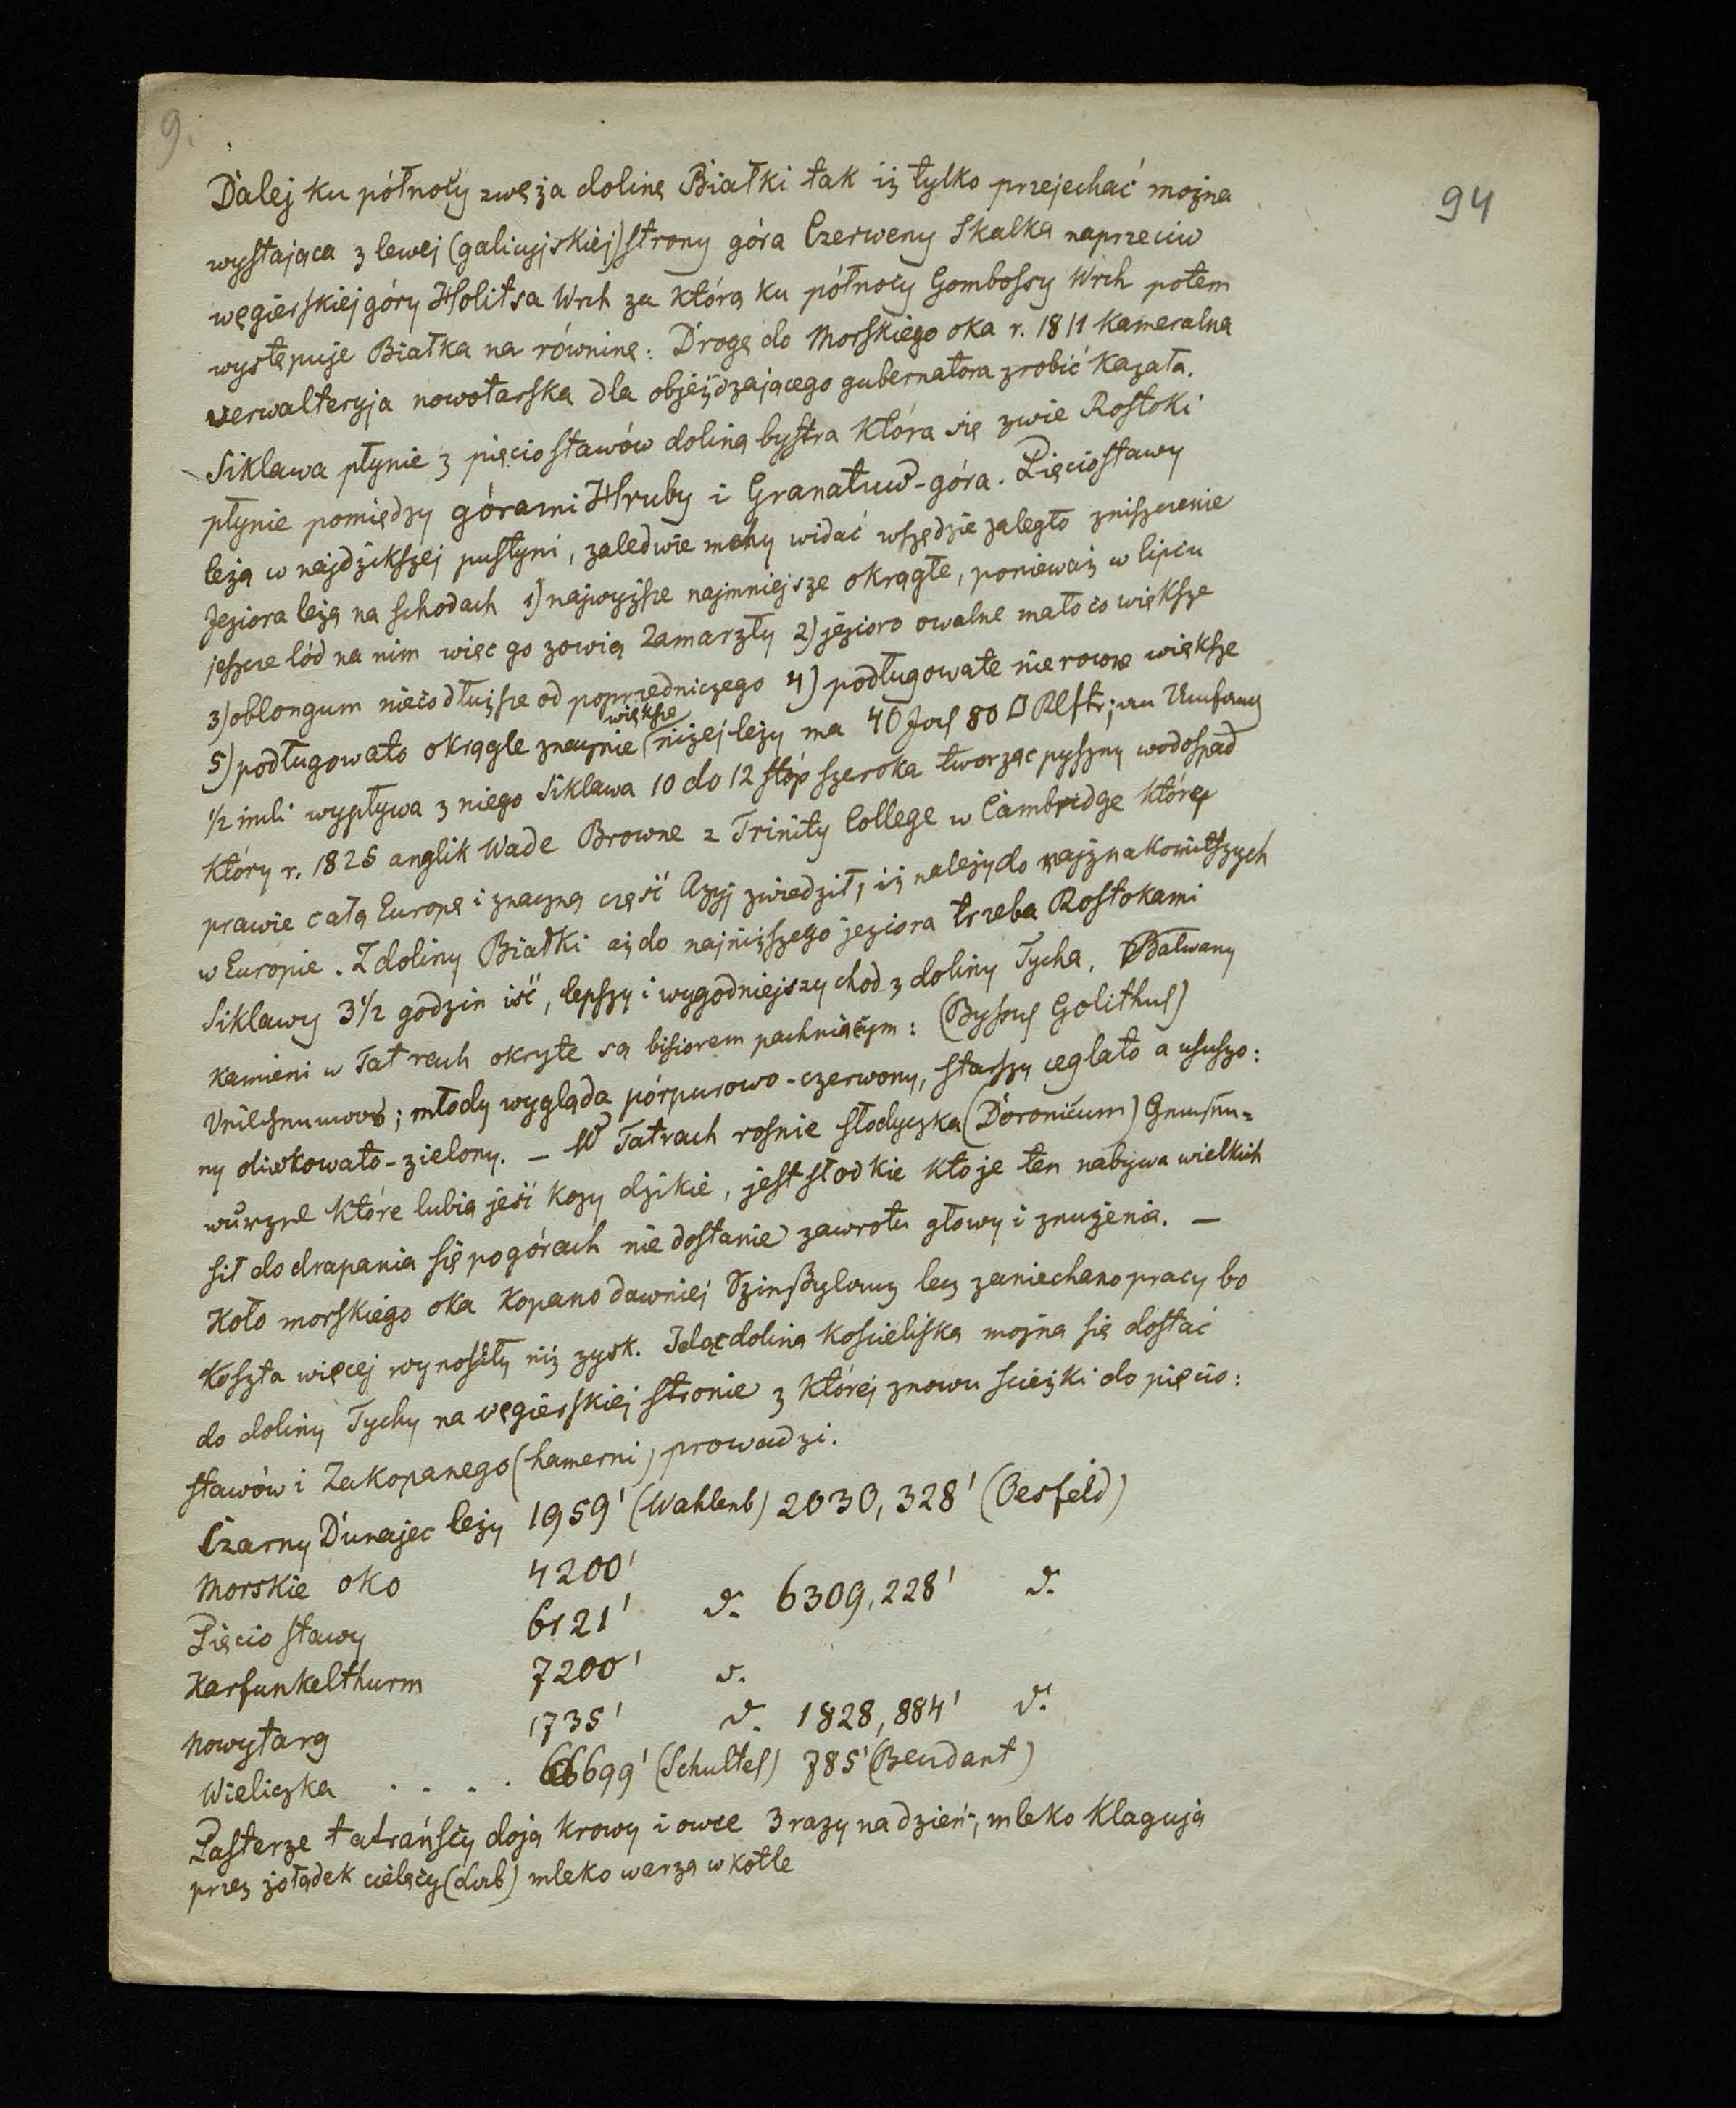 9.
94
Dalej ku północy zwęża dolinę Białki tak iż tylko przejechać można
wystająca z lewej (galicyjskiej) strony góra Czerweny Skalka naprzeciw
węgierskiej góry Holitsa Wrch za którą ku północy Gombossy Wrch potem
występuje Białka na równinę. Drogę do Morskiego oka r. 1811 kameralna
verwalteryja nowotarska dla objeżdzającego gubernatora zrobić kazała.
Siklawa płynie z pięcio stawów doliną bystra która się zwie Rostoki
płynie pomiędzy górami Hruby i Granatuwd-góra. Pięciostawy
leżą w najdzikszej pustyni, zaledwie mchy widać wszędzie zaległo zniszczenie
Jeziora leżą na schodach 1) najwyższe najmniejsze okrągłe, ponieważ w lipcu
jeszcze lód na nim więc go zowią Zamarzły 2) jezioro owalne mało co większe
3) oblongum nieco dłuższe od poprzedniczego 4) podługowate nierowne większe
5) podługowato okrągłe znacznie większe (niżej leży ma 40 Joch 80 □ Klftr;
1/2 mili wypływa z niego Siklawa 10 do 12 stóp szeroka tworząc pyszny wodospad
który r. 1825 anglik Wade Browne z Trinity College w Cambridge który
prawie całą Europę i znaczną część Azyj zwiedził, iż należy do najznakomitszych
w Europie. Z doliny Białki aż do najniższego jeziora trzeba Rostokami
Siklawy 3 1/2 godzin iść, lepszy i wygodniejszy chod z doliny Tycha. Bałwany
kamieni w Tatrach okryte są bisiorem pachniącym: (Byssus Golithus)
młody wygląda pórpurowo-czerwony, starszy ceglato a ususzo:
ny oliwkowato-zielony. — W Tatrach rosnie słodyczka (Doronicum) Gemsen=
wurzel które lubią jeść kozy dzikie, jest słodkie kto je ten nabywa wielkich
sił do drapania się po górach nie dostanie zawrotu głowy i znużenia. —
Koło morskiego oka kopano dawniej lecz zaniechano pracy bo
koszta więcej wynosiły niż zysk. Idąc doliną Kościeliska można się dostać
do doliny Tychy na węgierskiej stronie z której znowu scieżki do pięcio:
stawów i Zakopanego (hamerni) prowadzi.
Czarny Dunajec leży 1959' (Wahlenb) 2030,328' (Oesfeld)
Morskie oko 4200'
Pięcio stawy 6121' d. 6309,228' d.
Karfunkelthurm 7200' d.
Nowytarg 1735' d. 1828,884' d.
Wieliczka . . . . 699' (Schultes) 785' (Beudant)
Pasterze tatrańscy doją krowy i owce 3 razy na dzień, mleko klagują
przez żołądek cielęcy (dub) mleko warzą w kotle